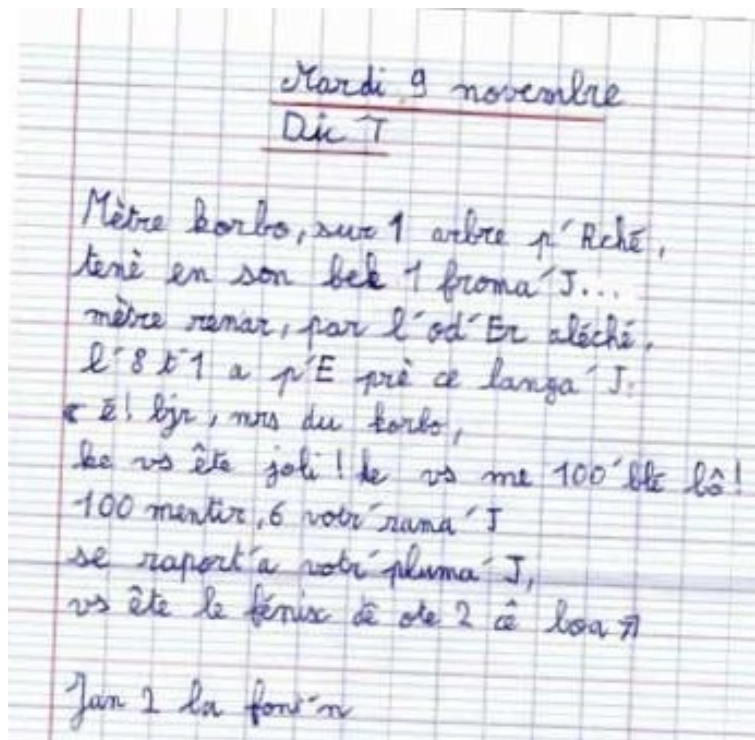 Mardi 9 novembre
Dic T
Mètre korbo, sur 1 arbre p'Rché,
tenè en son bek 1 froma'J...
mètre renar, par l'od'Er aléché,
l'8 t'1 a p'E prè ce langa'J:
« é! bjr, mrs du korbo,
ke vs ête joli! ke vs me 100'blé bô!
100 mentir, 6 votr'rama'J
se raport'a votr'pluma'J,
vs ête le fénix dê ote 2 cê boa π
Jan 2 la font'n